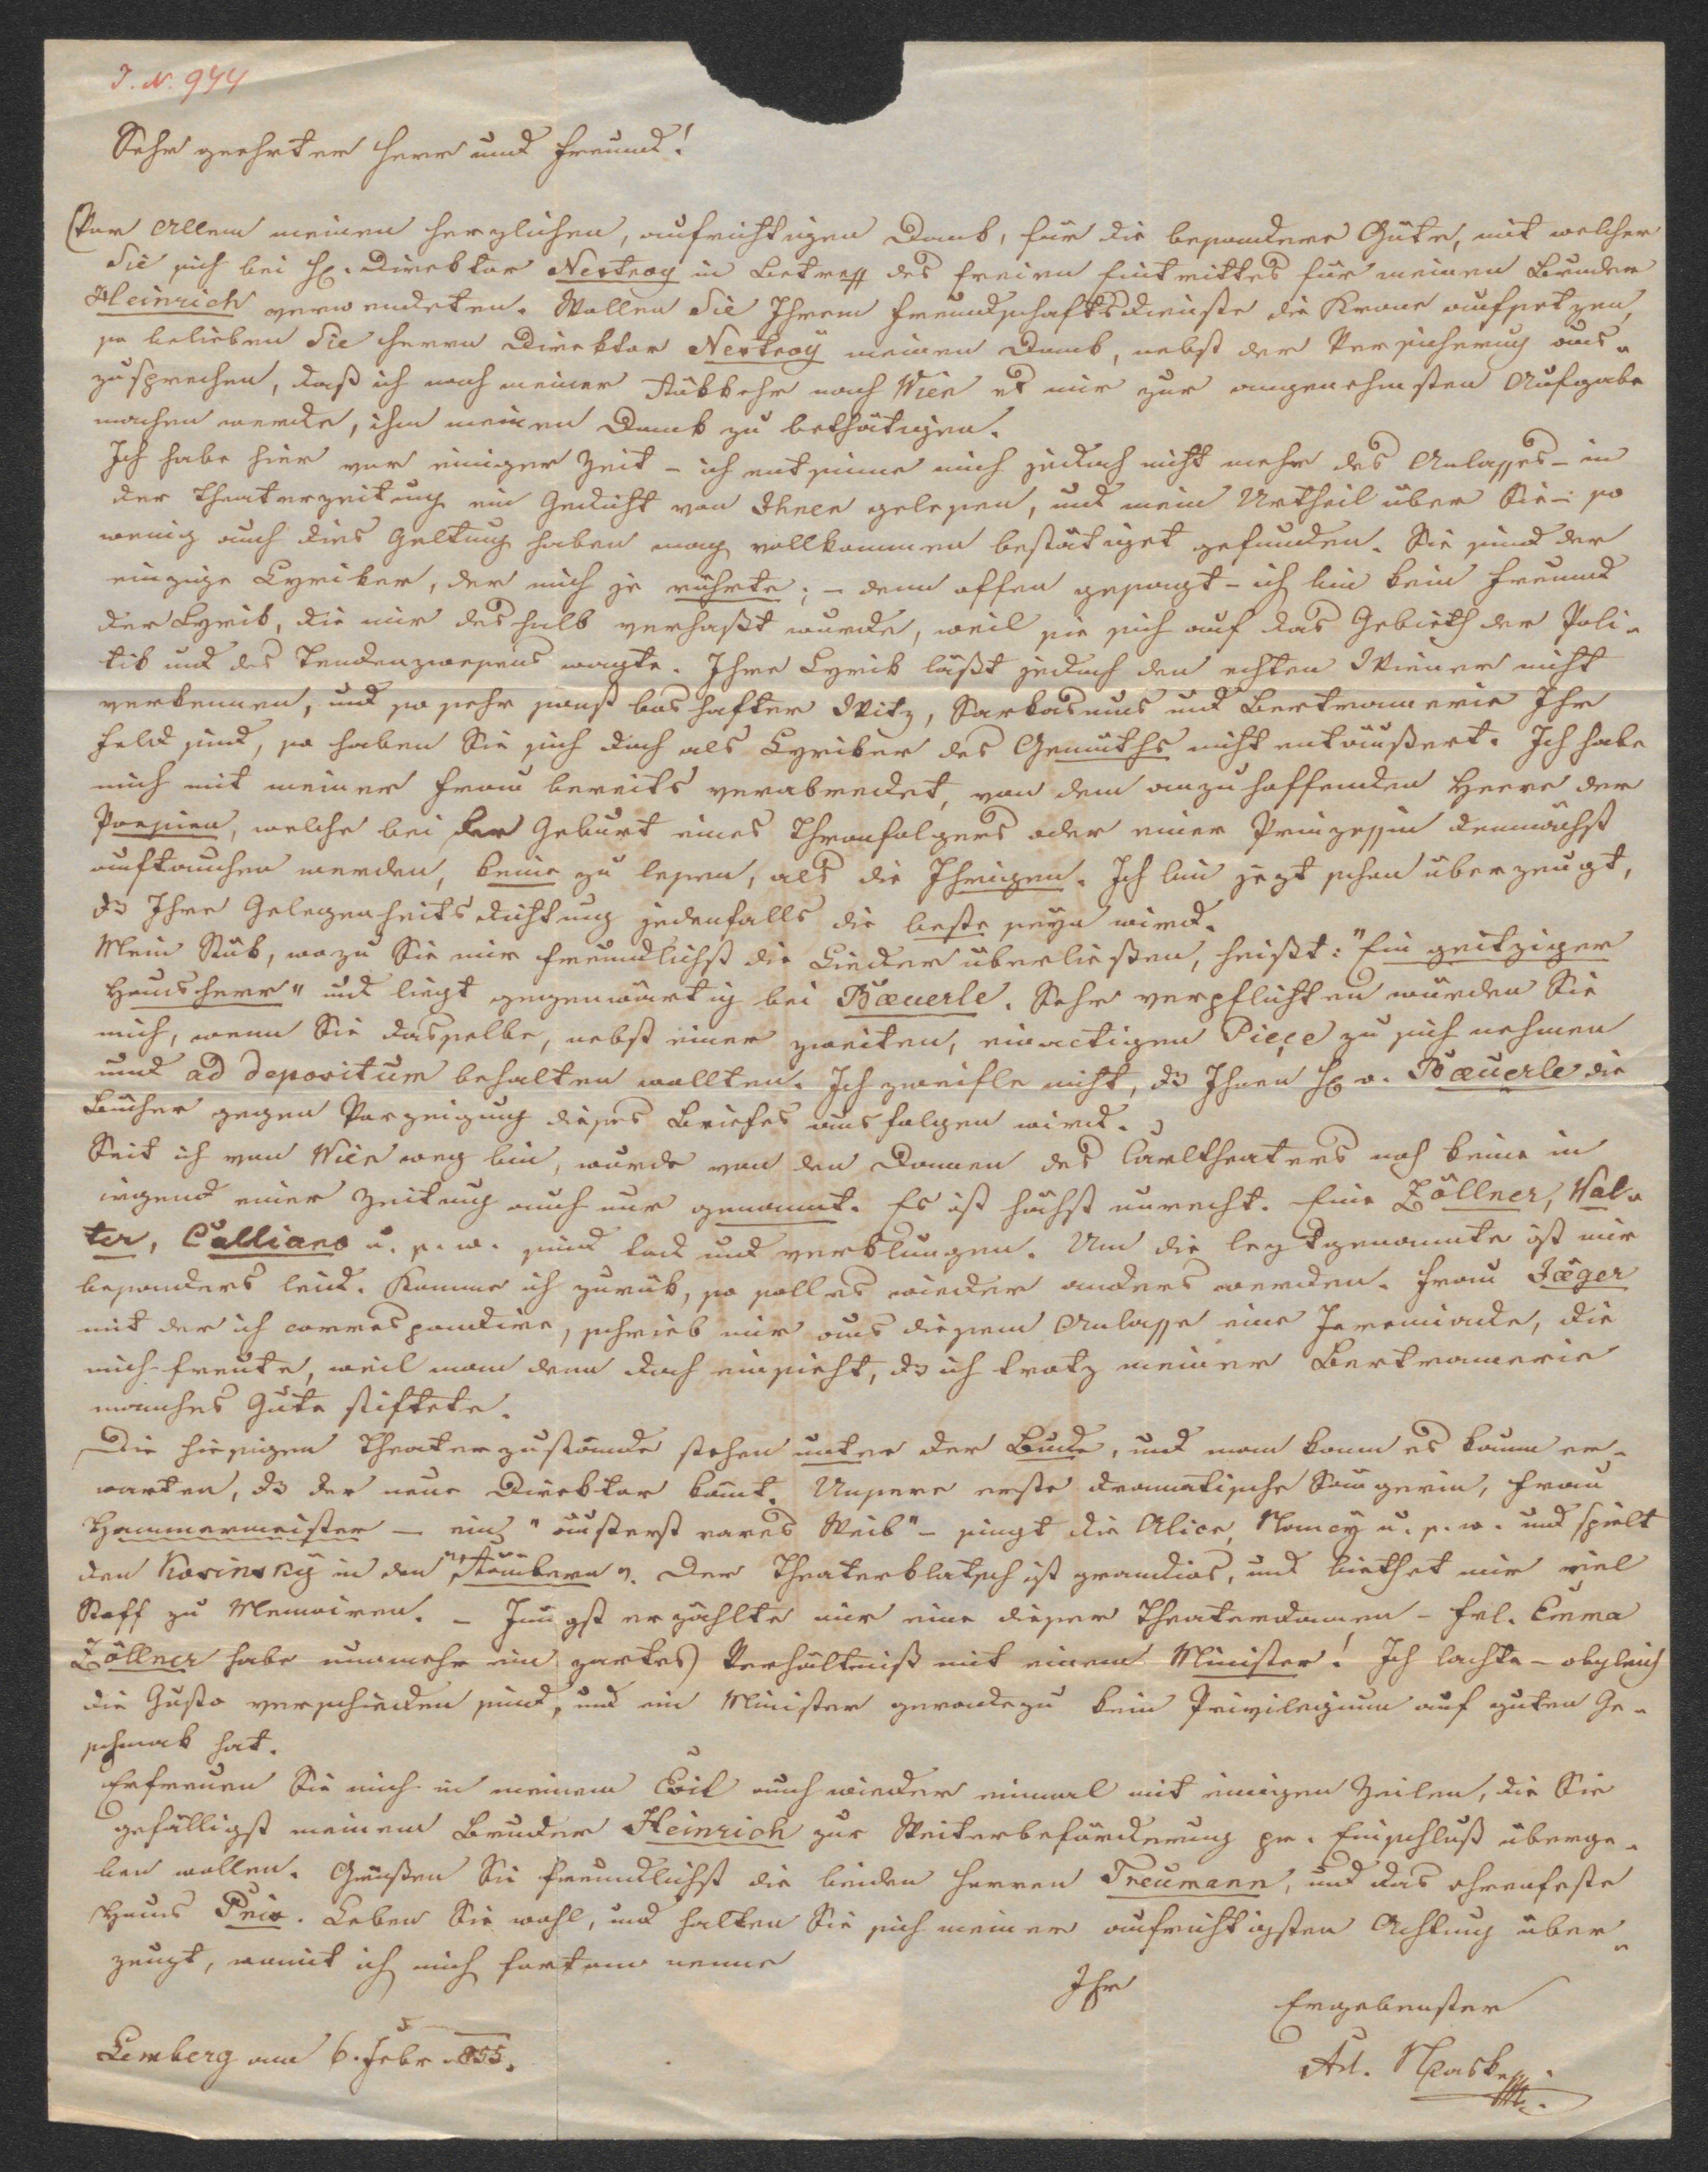 J. N. 944
Sehr geehrter Herr und Freund!
Vor Allem meinen herzlichen, aufrichtigen Dank, für die besondere Güte, mit welcher
Sie sich bei H. Direktor Nestroy in Betreff des freien Eintrittes für meinen Bruder
Heinrich verwendeten. Wollen Sie Ihrem Freundschaftsdienste die Krone aufsetzen,
so belieben Sie Herrn Direktor Nestroy meinen Dank, nebst der Versicherung aus-
zusprechen, daß ich nach meiner Rükkehr nach Wien es mir zur angenehmsten Aufgabe
machen werde, ihm meinen Dank zu bethätigen.
Ich habe hier vor einiger Zeit – ich entsinne mich jedoch nicht mehr des Anlasses – in
der Theaterzeitung ein Gedicht von Ihnen gelesen, und mein Urtheil über Sie – so
wenig auch dies Geltung haben mag vollkommen bestätiget gefunden. Sie sind der
einzige Lyriker, der mich je rührte; – denn offen gesagt – ich bin kein Freund
der Lyrik, die mir deshalb verhaßt wurde, weil sie sich auf das Gebieth der Poli-
tik und des Tendenzwesens wagte. Ihre Lyrik läßt jedoch den echten Wiener nicht
verkennen, und so sehr sonst boshafter Witz, Sarkasmus und Bertramerie Ihr
Feld sind, so haben Sie sich doch als Lyriker des Gemüths nicht entäußert. Ich habe
mich mit meiner Frau bereits verabredet, von dem anzuhoffenden Heere der
Poesien, welche bei der Geburt eines Thronfolgers oder einer Prinzessin demnächst
auftauchen werden, keine zu lesen, als die Ihrigen. Ich bin jezt schon überzeugt,
dß Ihre Gelegenheitsdichtung jedenfalls die beste seyn wird.
Mein Stük, wozu Sie mir freundlichst die Lieder überließen, heißt: "Ein geitziger
Hausherr" und liegt gegenwärtig bei Bæuerle. Sehr verpflichten würden Sie
mich, wenn Sie dasselbe, nebst einer zweiten, einactigen Pieçe zu sich nehmen
und ad depositum behalten wollten. Ich zweifle nicht, dß Ihnen H. v. Bæuerle die
Bücher gegen Vorzeigung dieses Briefes ausfolgen wird.
Seit ich von Wien weg bin, wurde von den Damen des Carltheaters noch keine in
irgend einer Zeitung auch nur genannt. Es ist höchst unrecht. Eine Zöllner, Wal-
ter, Calliano u. s. w. sind tod und verklungen. Um die leztgenannte ist mir
besonders leid. Komme ich zurük, so soll es wieder anders werden. Frau Jæger
mit der ich correspondire, schrieb mir aus diesem Anlasse eine Jeremiade, die
mich freute, weil man denn doch einsieht, dß ich trotz meiner Bertramerie
manches Gute stiftete.
Die hiesigen Theaterzustände stehen unter der Bude, und man kann es kaum er-
warten, dß der neue Direktor kömt. Unsere erste dramatische Sängerin, Frau
Hammermeister – ein "äußerst rares Weib" – singt die Alice, Nancy u. s. w. und spielt
den Kosinsky in den "Räubern". Der Theaterklatsch ist grandios, und biethet mir viel
Stoff zu Memoiren. – Jüngst erzählte mir eine dieser Theaterdamen – Frl. Emma
Zöllner habe nunmehr ein zartes Verhältniß mit einem Minister! Ich lachte – obgleich
die Gusto verschieden sind, und ein Minister geradezu kein Privilegium auf guten Ge-
schmak hat.
Erfreuen Sie mich in meinem Exil auch wieder einmal mit einigen Zeilen, die Sie
gefälligst meinem Bruder Heinrich zur Weiterbeförderung pr. Einschluß überge-
ben wollen. Grüßen Sie freundlichst die beiden Herren Treumann, und das ehrenfeste
Haus Prix. Leben Sie wohl, und halten Sie sich meiner aufrichtigsten Achtung über-
zeugt, womit ich mich fortan nenne
Ihr
Ergebenster
Lemberg am 6. Febr 855.
Ad.